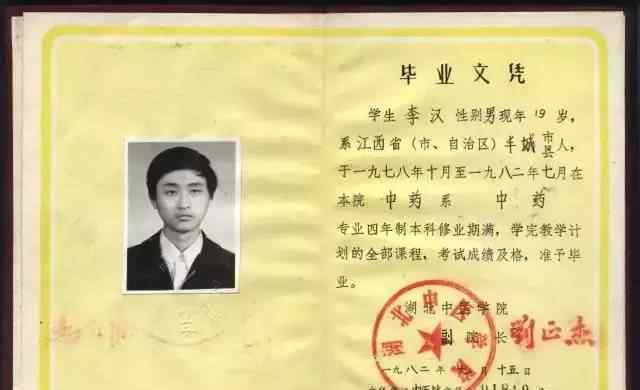 毕业文凭
学生 李汉 性别男现年19岁,
系江西省(市、自治区)丰城市县人,
于一九七八年十月至一九八二年七月在
本院 中药系 中药
专业四年制本科修业期满,学完教学计
划的全部课程,考试成绩及格,准予毕
业。
湖北中医学院
副院长 刘正杰
一九八二年 月十五日